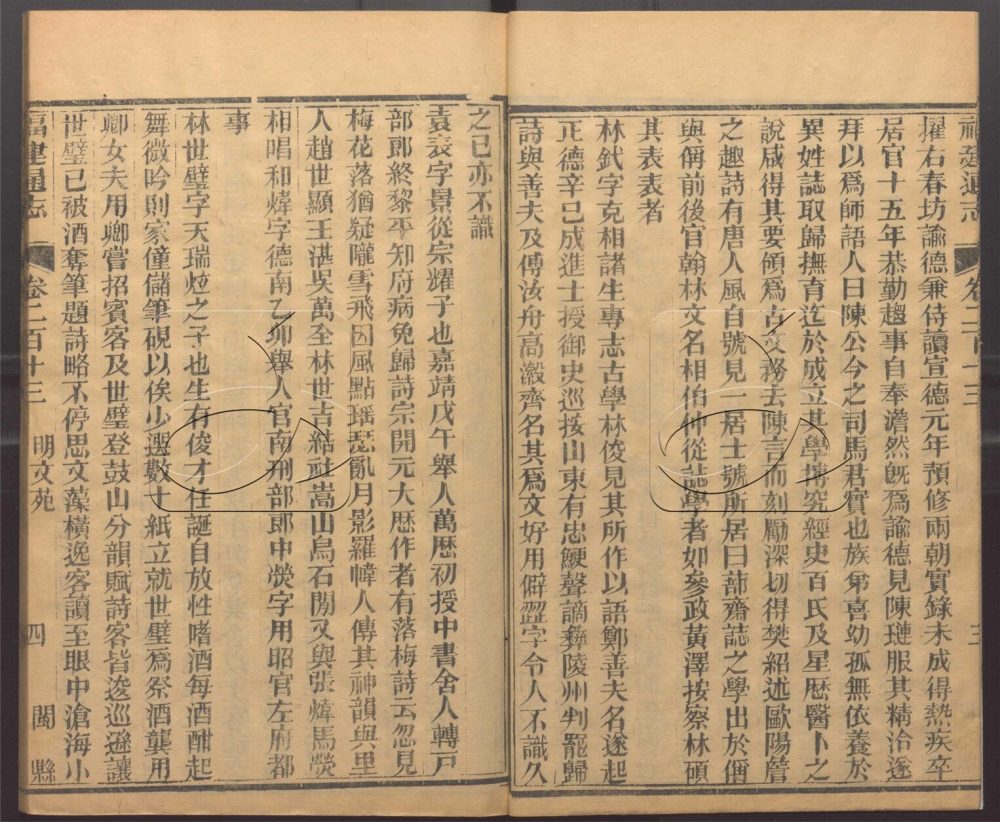 福建通志 卷二百十三 三
擢右春坊諭德兼侍讀宣德元年預修兩朝實錄未成得熱疾卒
居官十五年恭勤趨事自奉澹然旣爲諭德見陳璉服其精洽遂
拜以爲師語人曰陳公今之司馬君實也族弟喜幼孤無依養於
異姓誌取歸撫育迄於成立其學博究經史百氏及星歷醫卜之
說咸得其要領爲古文務去陳言而刻勵深切得樊紹述歐陽詹
之趣詩有唐人風自號見一居士號所居曰蔀齋誌之學出於偁
與偁前後官翰林文名相伯仲從誌學者如參政黃澤按察林碩
其表表者
林釴字克相諸生專志古學林俊見其所作以語鄭善夫名遂起
正德辛巳成進士授御史巡按山東有忠鯁聲謫彝陵州判罷歸
詩與善夫及傅汝舟高瀔齊名其爲文好用僻澀字令人不識久
之已亦不識
袁表字景從宗耀子也嘉靖戊午舉人萬歷初授中書舍人轉戸
部郎終黎平知府病免歸詩宗開元大歷作者有落梅詩云忽見
梅花落猶疑隴雪飛因風點瑤瑟亂月影羅幃人傳其神韻與里
人趙世顯王湛吳萬全林世吉結社嵩山烏石閒又與張煒馬熒
相唱和煒字德南乙卯舉人官南刑部郎中熒字用昭官左府都
事
林世璧字天瑞炫之子也生有俊才任誕自放性嗜酒每酒酣起
舞微吟則家僮儲筆硯以俟少選數十紙立就世璧爲祭酒龔用
卿女夫用卿嘗招賓客及世璧登鼓山分韻賦詩客皆逡巡遜讓
世璧已被酒奪筆題詩略不停思文藻橫逸客讀至眼中滄海小
福建通志 卷二百十三 明文苑 四 閩縣